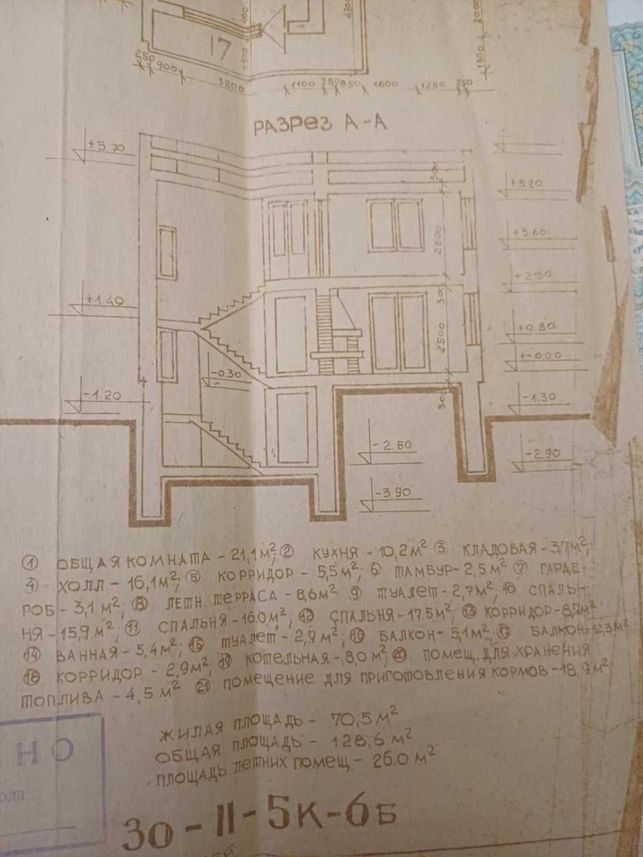 17
250 900 3200 1100 350 850 1600 1250 250
1300 2000
РАЗРЕЗ А-А
+5.70
+5.20
+3.60
2500
+2.50
+1.40
30
+0.80
2500
+-0.00
-0.30
-1.20
500
-1.30
-2.50
-2.90
-3.90
① ОБЩАЯ КОМНАТА - 21,1 М², ② КУХНЯ - 10,2 М² ③ КЛАДОВАЯ - 3,7 М²,
4 - ХОЛЛ - 16,1 М², ⑤ КОРРИДОР - 5,5 М², ⑥ ТАМБУР - 2,5 М² ⑦ ГАРДЕ-
РОБ - 3,1 М², ⑧ ЛЕТН. ТЕРРАСА - 8,6 М² ⑨ ТУАЛЕТ - 2,7 М², ⑩ СПАЛЬ-
НЯ - 15,9 М², ⑪ СПАЛЬНЯ - 16.0 М², СПАЛЬНЯ - 17.5 М², КОРРИДОР - 8,7 М²,
⑭ ВАННАЯ - 5,4 М², ⑮ ТУАЛЕТ - 2,7 М², ⑯ БАЛКОН - 5,1 М², ⑰ БАЛКОН - 12,3 М²
⑱ КОРРИДОР - 2,9 М², ⑲ КОТЕЛЬНАЯ - 8.0 М², ⑳ ПОМЕЩ. ДЛЯ ХРАНЕНИЯ
ТОПЛИВА - 4,5 М² ㉑ ПОМЕЩЕНИЕ ДЛЯ ПРИГОТОВЛЕНИЯ КОРМОВ - 18,9 М²,
ЖИЛАЯ ПЛОЩАДЬ - 70,5 М²
ОБЩАЯ ПЛОЩАДЬ - 128,6 М²
ПЛОЩАДЬ ЛЕТНИХ ПОМЕЩ. - 26.0 М²
НО
ода
30-II-5К-6Б